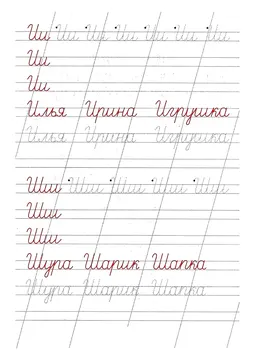 Ии Ии Ии Ии Ии Ии Ии
Ии
Ии
Илья Ирина Игрушка
Илья Ирина Игрушка
Ши Ши Ши Ши Ши
Ши
Ши
Шура Шарик Шапка
Шура Шарик Шапка